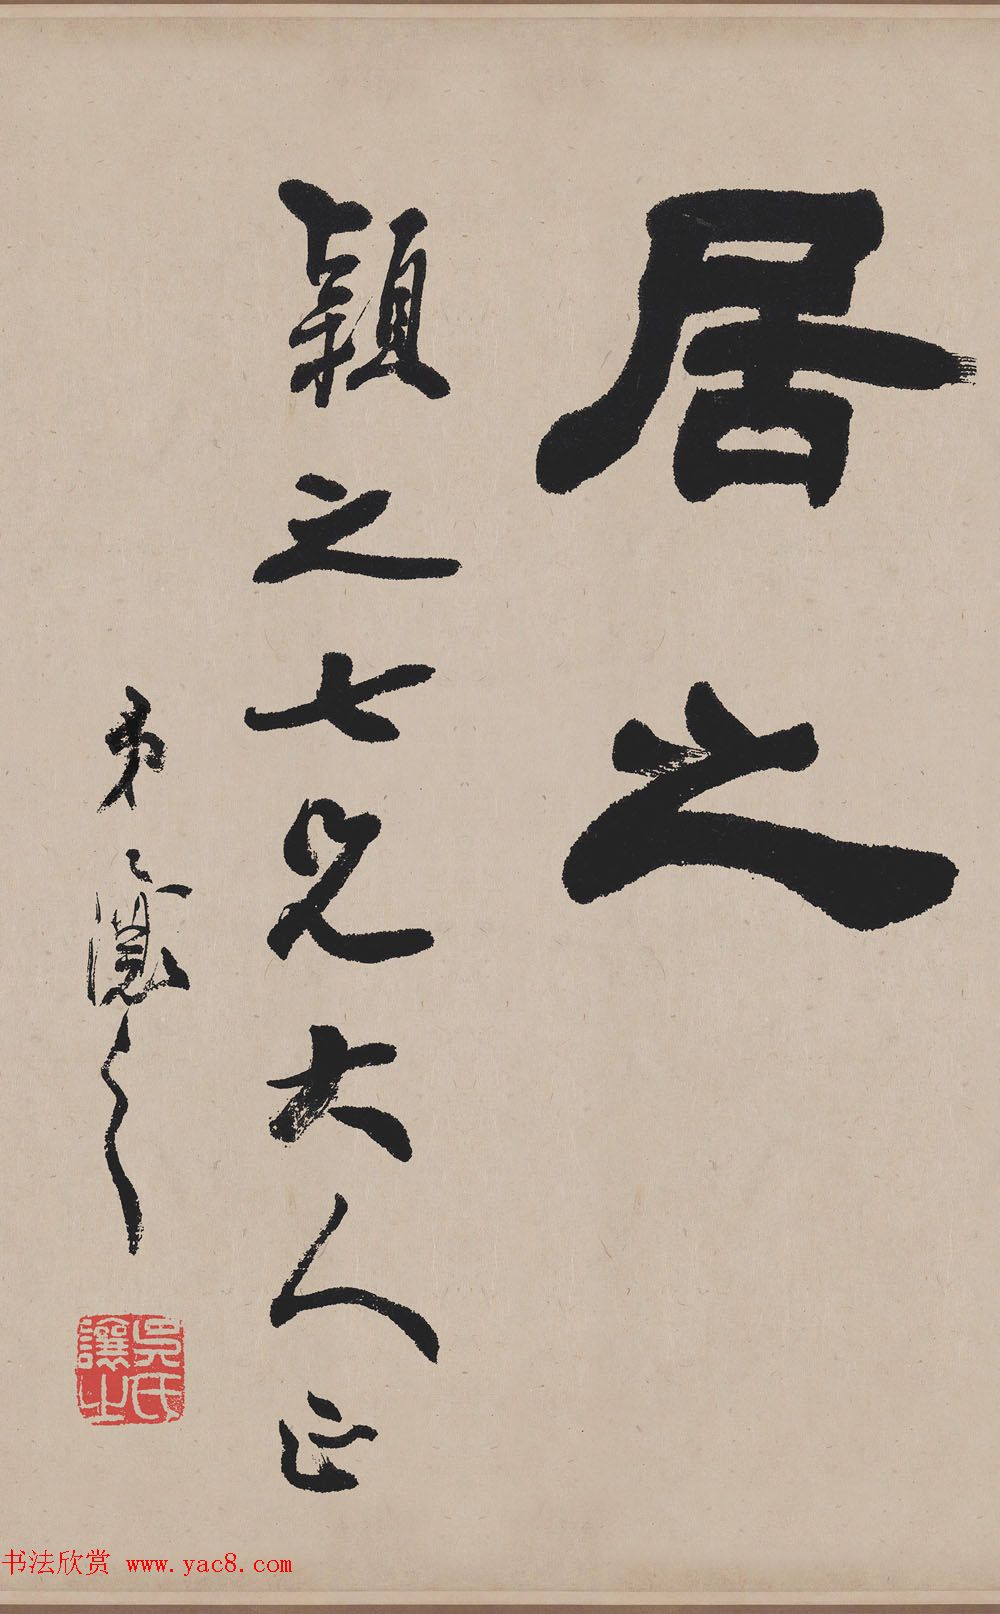 居之
穎之七兄大人正
弟讓之
吳氏讓之
书法欣赏 www.yac8.com